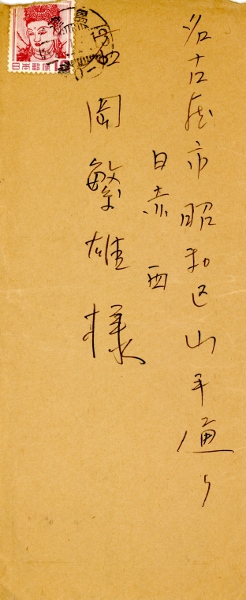 名古屋市昭和区山手通り
日赤西
岡繁雄様
日本郵便
10